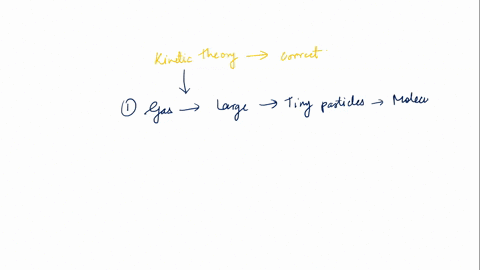 Kinetic theory → correct
↓
① Gas → Large → Tiny particles → Molecu